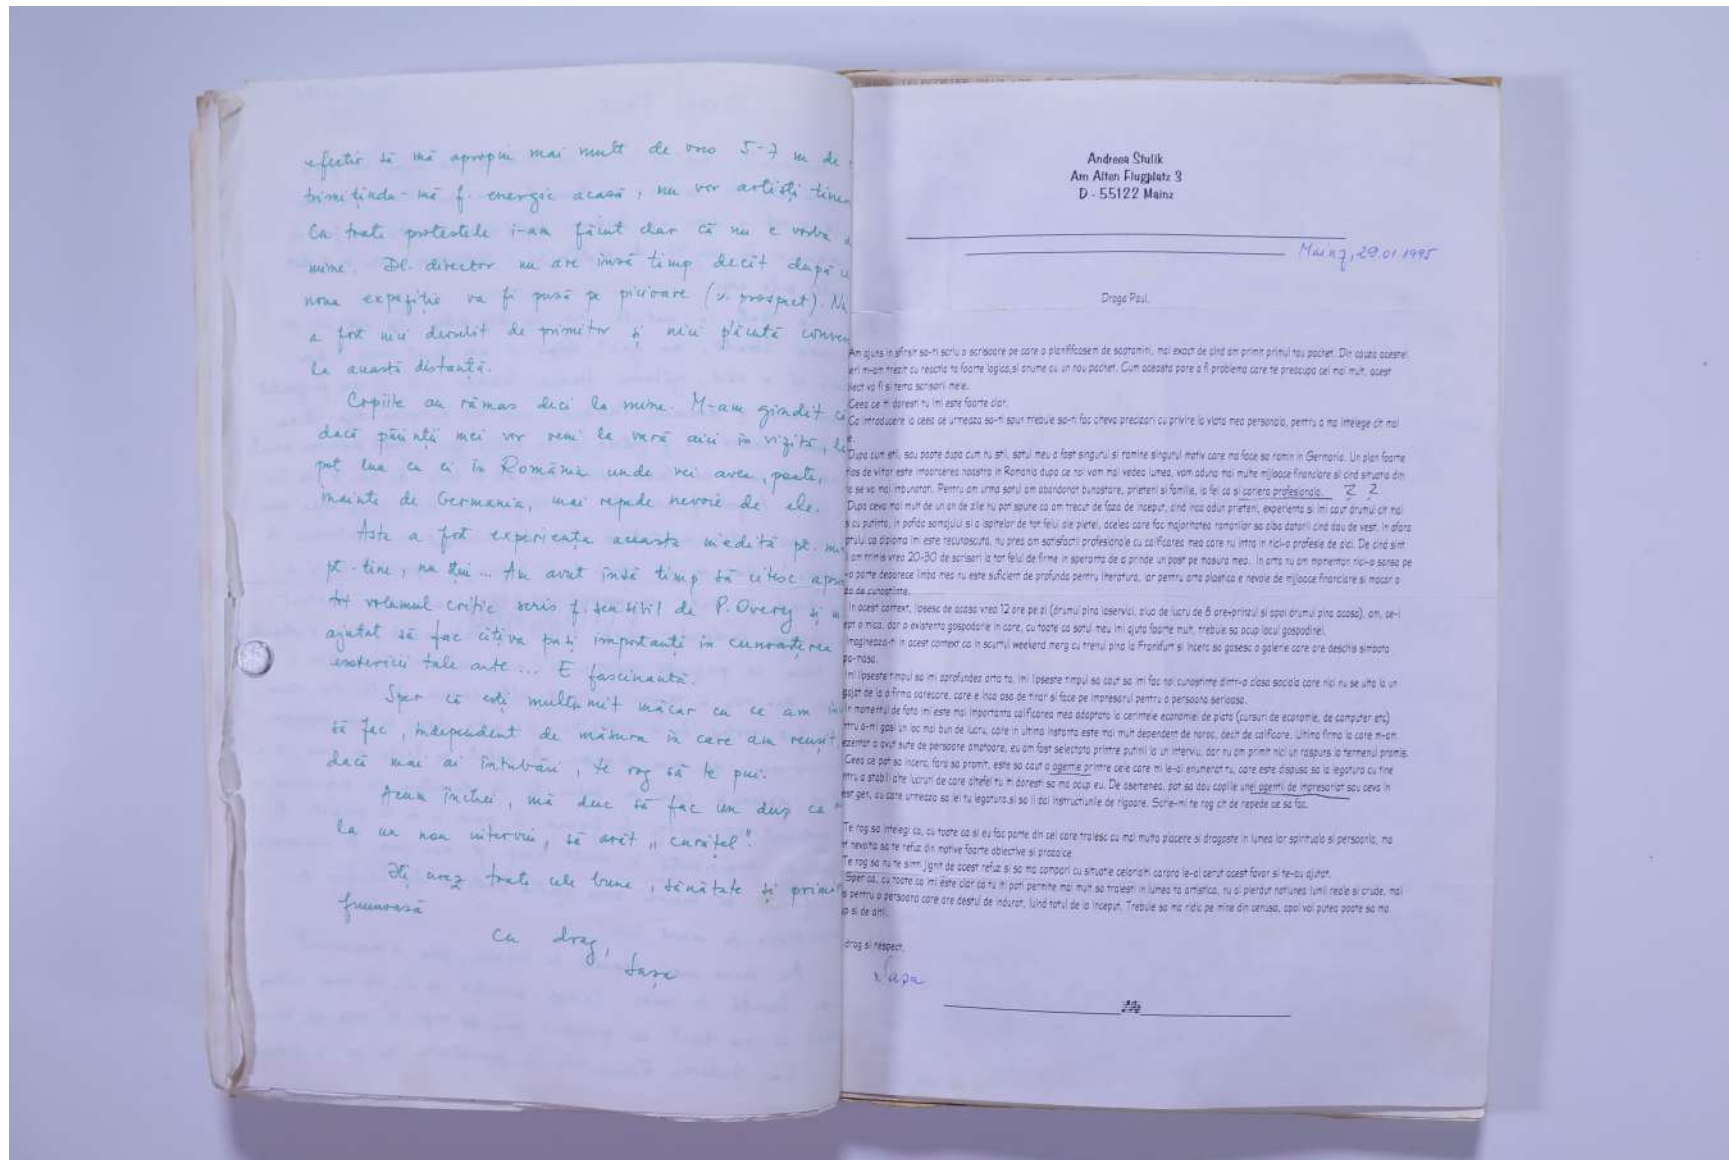 efectiv să mă apropiu mai mult de vreo 5-7 m de
trimiţindu-mă f. energic acasă, nu vor artişti tineri
Cu toate protestele i-am făcut clar că nu e vorba
mine. Dl. director nu are însă timp decît după ce
noua expoziţie va fi pusă pe picioare (v. prospect). Nu
a fost nici deosebit de primitor şi nici plăcută
la această distanţă.
Copiile au rămas deci la mine. M-am gîndit că
dacă părinţii mei vor veni la vară aici în vizită, le
pot lua cu ei în România unde vei avea, poate,
înainte de Germania, mai repede nevoie de ele.
Asta a fost experienţa aceasta inedită pt.
pt. tine, nu ştiu... Am avut însă timp să citesc
tot volumul critic scris f. sensibil de P. Overy şi
ajutat să fac cîţiva paşi importanţi în cunoaşterea
esotericii tale arte... E fascinantă.
Sper că eşti mulţumit măcar cu ce am
să fac, independent de măsura în care am reuşit
dacă mai ai întrebări, te rog să le pui.
Acum închei, mă duc să fac un duş ca
la un nou interviu, să arăt „curăţel".
Îţi urez toate cele bune, sănătate şi
frumoasă
Cu drag,
Saşa
Andreea Stulik
Am Alten Flugplatz 3
D - 55122 Mainz
Mainz, 29.01.1995
Draga Paul,
Am ajuns in sfirsit sa-ti scriu o scrisoare pe care o planificasem de saptamini, mai exact de cind am primit primul tau pachet. Din cauza acestei
eri m-am trezit cu reactia ta foarte logica,si anume cu un nou pachet. Cum aceasta pare a fi problema care te preocupa cel mai mult, acest
iect va fi si tema scrisorii mele.
Ceea ce ti doresti tu imi este foarte clar.
Ca introducere la ceea ce urmeaza sa-ti spun trebuie sa-ti fac citeva precizari cu privire la viata mea personala, pentru a ma intelege cit mai
e.
Dupa cum stii, sau poate dupa cum nu stii, sotul meu a fost singurul si ramine singurul motiv care ma face sa ramin in Germania. Un plan foarte
de viitor este intoarcerea noastra in Romania dupa ce noi vom mai vedea lumea, vom aduna mai multe mijloace financiare si cind situatia din
a se va mai imbunatati. Pentru am urma sotul am abandonat bunastare, prieteni si familie, la fel ca si cariera profesionala. ? ?
Dupa ceva mai mult de un an de zile nu pot spune ca am trecut de faza de inceput, cind inca adun prieteni, experienta si imi caut drumul cit mai
s cu putinta, in pofida somajului si a ispitelor de tot felul ale pietei, acelea care fac majoritatea romanilor sa aiba datorii cind dau de vest. In afara
ptului ca diploma imi este recunoscuta, nu prea am satisfactii profesionale cu calificarea mea care nu intra in nici-o profesie de aici. De cind sint
i am trimis vreo 20-30 de scrisori la tot felul de firme in speranta de a prinde un post pe masura mea. In arta nu am momentan nici-o sansa pe
-o parte deoarece limba mea nu este suficient de profunda pentru literatura, iar pentru arta plastica e nevoie de mijloace financiare si macar o
za de cunostinte.
In acest context, lipsesc de acasa vreo 12 ore pe zi (drumul pina laservici, ziua de lucru de 8 ore+prinzul si apoi drumul pina acasa), am, ce-i
ept o mica, dar o existenta gospodarie in care, cu toate ca sotul meu imi ajuta foarte mult, trebuie sa ocup locul gospodinei.
Imagineaza-ti in acest context ca in scurtul weekend merg cu trenul pina la Frankfurt si incerc sa gasesc o galerie care are deschis simbata
pa-masa.
Imi lipseste timpul sa imi aprofundez arta ta, imi lipseste timpul sa caut sa imi fac noi cunostinte dintr-o clasa sociala care nici nu se uita la un
gajat de la o firma oarecare, care e inca asa de tinar si face pe impresarul pentru o persoana serioasa.
In momentul de fata imi este mai importanta calificarea mea adaptata la cerintele economiei de piata (cursuri de economie, de computer etc)
ntru a-mi gasi un loc mai bun de lucru, care in ultima instanta este mai mult dependent de noroc, decit de calificare. Ultima firma la care m-am
ezentat a avut sute de persoane amatoare, eu am fost selectata printre putinii la un interviu, dar nu am primit nici un raspuns la termenul promis.
Ceea ce pot sa incerc, fara sa promit, este sa caut o agentie printre cele care mi le-ai enumerat tu, care este dispusa sa ia legatura cu tine
ntru a stabili alte lucruri de care altefel tu iti doresti sa ma ocup eu. De asemenea, pot sa dau copiile unei agentii de impresariat sau ceva in
est gen, cu care urmeaza sa iei tu legatura,si sa ii dai instructiunile de rigoare. Scrie-mi te rog cit de repede ce sa fac.
Te rog sa intelegi ca, cu toate ca si eu fac parte din cei care traiesc cu mai multa placere si dragoste in lumea lor spirituala si personala, ma
d nevoita sa te refuz din motive foarte obiective si prozaice.
Te rog sa nu te simti jignit de acest refuz si sa ma compari cu situatie celorlalti carora le-ai cerut acest favor si te-au ajutat.
Sper ca, cu toate ca imi este clar ca tu iti poti permite mai mult sa traiesti in lumea ta artistica, nu ai pierdut notiunea lumii reale si crude, mai
s pentru o persoana care are destul de indurat, luind totul de la inceput. Trebuie sa ma ridic pe mine din cenusa, apoi voi putea poate sa ma
p si de altii.
drag si respect,
Saşa